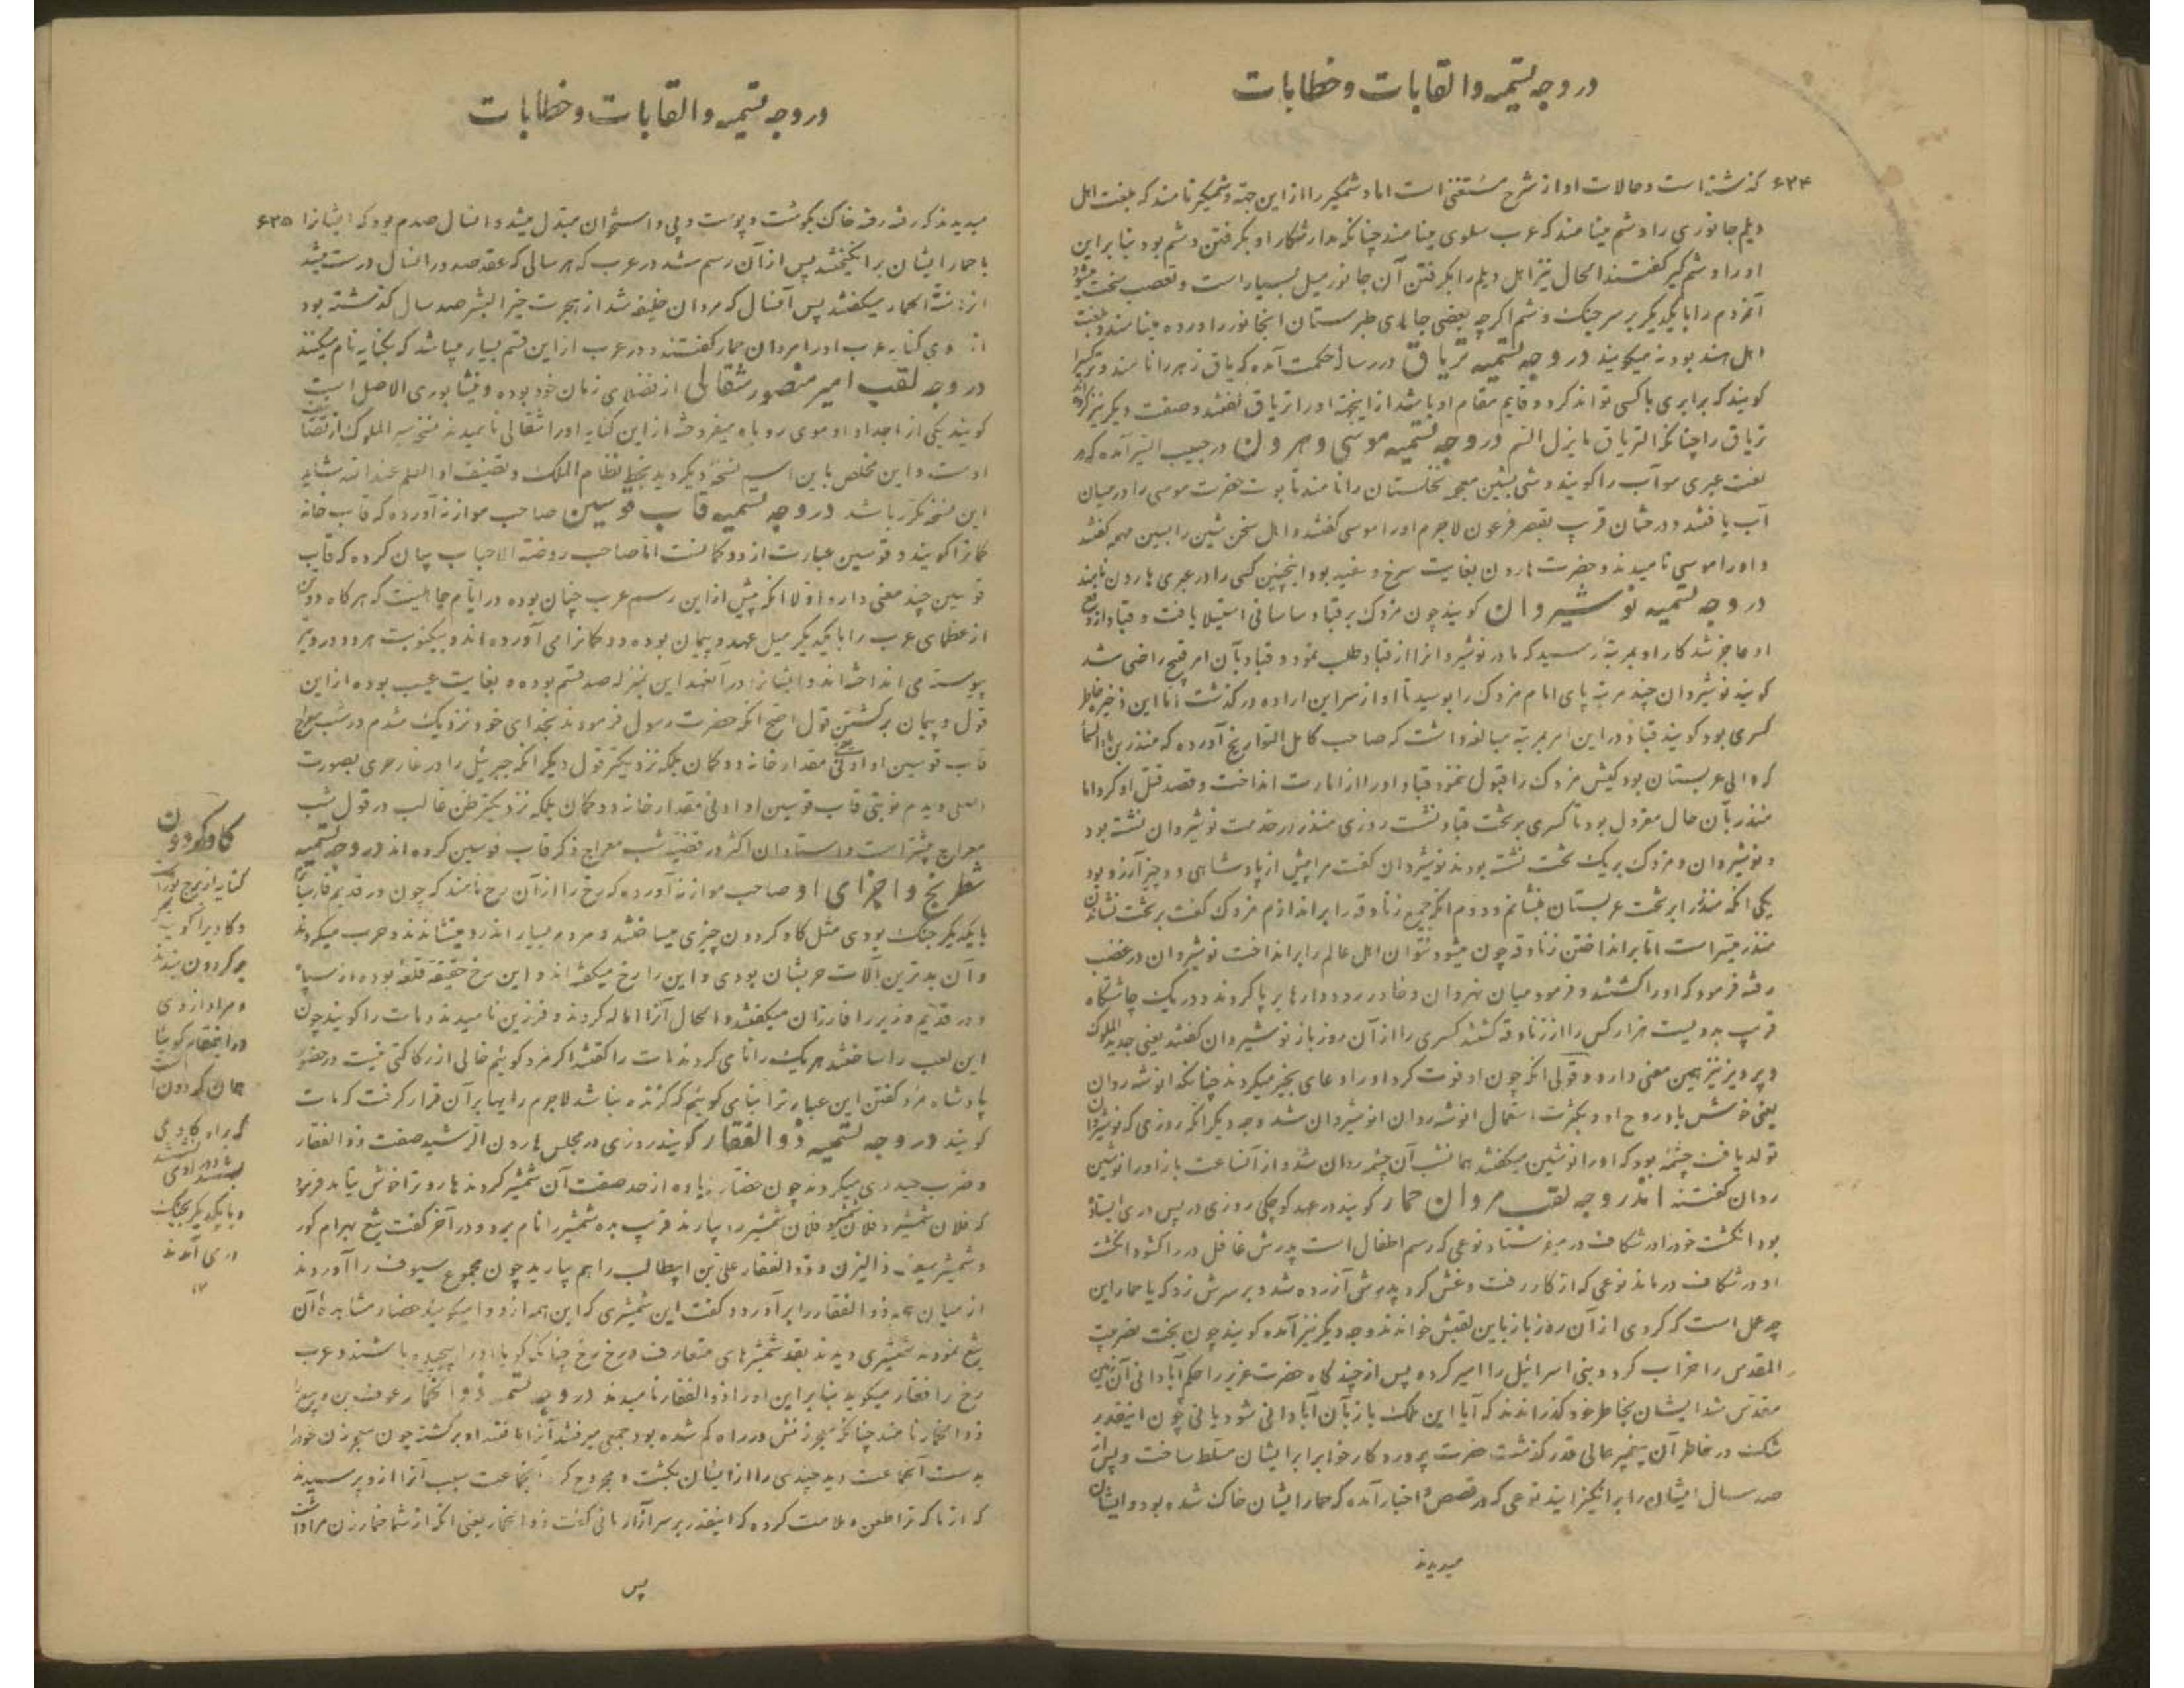 در وجه تسمیه والقابات وخطابات
۶۳۴ گذشته است وحالات او از شرح مستغنی است اما وشمگیر را از این جهة وشمگیر نامند که بلغت اهل
دیلم جانوری را وشم مینامند که عرب سلوی مینامند چنانکه مدار شکار او بگرفتن وشم بود بنا براین
او را وشم گیر گفتند الحال نیز اهل دیلم را بگرفتن آن جانور میل بسیار است وتعصب سخت میشود
آدم را با یکدیگر بر سر جنک وشم اگرچه بعضی جاهای طبرستان آنجانور را ورده مینامند وبلغت
اهل هند بودنه میگویند در وجه تسمیه تریاق در رساله حکمت آمده که یاق زهر را نامند وتر
گویند که برابری با کسی تواند کرد وقایم مقام او باشد از اینجهة او را تریاق گفتند وصفت دیگر نیز کرده
تریاق را چنانکه التریاق مایزل السم در وجه تسمیه موسی وهرون در حبیب السیر آمده که در
لغت عبری مو آب را گویند وشی بشین معجمه نخلستان را نامند تابوت حضرت موسی را در میان
آب یافتند ودرختان قریب بقصر فرعون لاجرم او را موسی گفتند واهل سخن شین را بسین مهمله گفتند
واو را موسی نامیدند وحضرت هارون بغایت سرخ وسفید بود اینچنین کسی را در عبری هارون نامند
در وجه تسمیه نوشیروان گویند چون مزدک بر قباد ساسانی استیلا یافت وقباد از دفع
او عاجز شد کار او بمرتبه رسید که مادر نوشیروانرا از قباد طلب نمود وقباد بآن امر قبیح راضی شد
گویند نوشیروان چند مرتبه پای امام مزدک را بوسید تا او از سر این اراده درگذشت اما این ذخیره خاطر
کسری بود گویند قباد در این امر بمرتبه مبالغه داشت که صاحب کامل التواریخ آورده که منذر بن ماءالسما
که والی عربستان بود کیش مزدک را قبول ننمود قباد او را از امارت انداخت وقصد قتل او کرد اما
منذر بآن حال معزول بود تا کسری بر تخت قباد نشست روزی منذر در خدمت نوشیروان نشسته بود
ونوشیروان ومزدک بر یک تخت نشسته بودند نوشیروان گفت مرا پیش از پادشاهی دو چیز آرزو بود
یکی آنکه منذر را بر تخت عربستان بنشانم ودوم آنکه جمیع زنادقه را براندازم مزدک گفت بر تخت نشاندن
منذر میسر است اما برانداختن زنادقه چون میشود نتوان اهل عالم را برانداخت نوشیروان در غضب
رفته فرمود که او را کشتند وفرمود میان نهروان وخادر رود دارها بر پا کردند ودر یک چاشتگاه
قریب بدویست هزار کس را از زنادقه کشتند کسری را از آن روز باز نوشیروان گفتند یعنی جدید الملوک
وپرویز نیز همین معنی دارد وقولی آنکه چون او فوت کرد او را دعای بخیر میکردند چنانکه انوشه روان
یعنی خوش باد روح او وبکثرت استعمال انوشه روان انوشیروان شد وجه دیگر آنکه روزی که نوشیروان
تولد یافت چشمه بود که او را نوشین میگفتند همانشب آن چشمه روان شد واز آنساعت باز او را نوشین
روان گفتند اند در وجه لقب مروان حمار گویند در عهد کوچکی روزی در پس دری ایستاده
بود انگشت خود را در شکاف در میفرستاد نوعی که رسم اطفال است پدرش غافل در را گشود انگشت
او در شکاف در ماند نوعی که از کار رفت وغش کرد پدرش آزرده شد وبر سرش زد که یا حمار این
چه عمل است که کردی از آن روز باز باین لقبش خواندند وجه دیگر نیز آمده گویند چون بخت نصر بیت
المقدس را خراب کرد وبنی اسرائیل را اسیر کرده پس از چند گاه حضرت عزیر را حکم آبادانی آن زمین
مقدس شد ایشان بخاطر خود گذراندند که آیا این ملک باز بآن آبادانی شود یا نی چون اینقدر
شک در خاطر آن پیغمبر عالی قدر گذشت حضرت پروردگار خواب را بر ایشان مسلط ساخت وپس از
صد سال ایشان را برانگیزانید نوعی که در قصص واخبار آمده که حمار ایشان خاک شده بود وایشان
میدیدند
در وجه تسمیه والقابات وخطابات
میدیدند که رفته رفته خاک بگوشت وپوست وپی واستخوان مبدل میشد وانسال صدم بود که ایشانرا ۶۳۵
با حمار ایشان برانگیختند پس از آن رسم شد در عرب که هر سالی که عقد صد در آنسال درست میشد
سنة الحمار میگفتند پس آنسال که مروان خلیفه شد از هجرت خیر البشر صد سال گذشته بود
کنایه عرب او را مروان حمار گفتند ودر عرب از این قسم بسیار میباشد که بکنایه نام میکنند
در وجه لقب امیر منصور شقالی از فضلای زمان خود بوده ونیشابوری الاصل است
گویند یکی از اجداد او موی روباه میفروخته از این کنایه او را شقالی نامیدند نسخه سیر الملوک از تصانیف
اوست واین مخلص باین اسم نسخه دیگر دید بخط نظام الملک وتصنیف او العلم عند الله شاید
این نسخه مکرر باشد در وجه تسمیه قاب قوسین صاحب موازنه آورده که قاب خانه
کمانرا گویند وقوسین عبارت از دو کمانست اما صاحب روضة الاحباب بیان کرده که قاب
قوسین چند معنی دارد اولا آنکه پیش از این رسم عرب چنان بوده در ایام جاهلیت که هرگاه دو تن
از عظمای عرب را با یکدیگر میل عهد وپیمان بوده دو کمانرا می آورده اند وبیکنوبت هر دو در وتر
پیوسته می انداخته اند وایشانرا در آنعهد این بمنزله صد قسم بوده وبغایت عیب بوده از این
قول وپیمان برگشتن قول اصح آنکه حضرت رسول فرمودند بخدای خود نزدیک شدم در شب معراج
قاب قوسین او ادنی مقدار خانه دو کمان بلکه نزدیکتر قول دیگر آنکه جبرئیل را در غار حری بصورت
اصلی دیدم نوبتی قاب قوسین او ادنی مقدار خانه دو کمان بلکه نزدیکتر ظن غالب در قول شب
معراج بیشتر است واستادان اکثر در قضیه شب معراج ذکر قاب قوسین کرده اند در وجه تسمیه
شطرنج واجزای او صاحب موازنه آورده که رخ را از آن رخ نامند که چون در قدیم فارسیان
با یکدیگر جنک بودی مثل گاو گردون چیزی میساختند ومردم بسیار اندرو مینشاندند وحرب میکردند
وآن بدترین آلات حربشان بودی واین را رخ میگفته اند واین رخ حقیقة قلعه بوده از سپاه
ودر قدیم وزیر را فرزان میگفتند والحال آنرا اماله کردند وفرزین نامیدند ومات را گویند چون
این لعب را ساختند هر یک را نامی کردند مات را گفتند اگر مرد گوئیم خالی از رکاکتی نیست در حضور
پادشاه مرد گفتن این عبارترا بنامی گوئیم که گزنده نباشد لاجرم رایها بر آن قرار گرفت که مات
گویند در وجه تسمیه ذوالفقار گویند روزی در مجلس هارون الرشید صفت ذوالفقار
وضرب حیدری میکردند چون حضار زیاده از حد صفت آن شمشیر کردند هارونرا خوش نیامد فرمود
که فلان شمشیر وفلان شمشیر وفلان شمشیر را بیارند قریب بده شمشیر را نام برد ودر آخر گفت تیغ بهرام گور
وشمشیر سیف ذالیزن وذوالفقار علی بن ابیطالب را هم بیارید چون مجموع سیوف را آوردند
از میان همه ذوالفقار را برآورد وگفت این شمشیری که این همه از او وا میگویند حضار مشاهده آن
تیغ نمودند شمشیری دیدند بقد شمشیرهای متعارف ورخ رخ چنانکه گویا او را پیچیده باشند وعرب
رخ را فقار میگوید بنا براین او را ذوالفقار نامیدند در وجه تسمیه ذوالخمار عوف بن ربیع را
ذوالخمار نامند چنانکه معجر زنش در راه گم شده بود جمعی میرفتند آنرا یافتند او برگشته چون معجر زن خود را
بدست آنجماعت دید چندی را از ایشان بکشت ومجروح کرد آنجماعت سبب آنرا از او پرسیدند
که از ما که ترا طعن وملامت کرده که اینقدر بر سر آزار مائی گفت ذوالخمار یعنی آنکه از شما خمار زن مرا داشت
پس
گاو گردون
کنایه از برج ثور
وگاویرا گویند
بر گردون بندند
ومراد از وی
در اینمقام گویا
همان گردون است
که برای گاو می
بستند
وبا یکدیگر بجنک
در می آمدند
۱۲